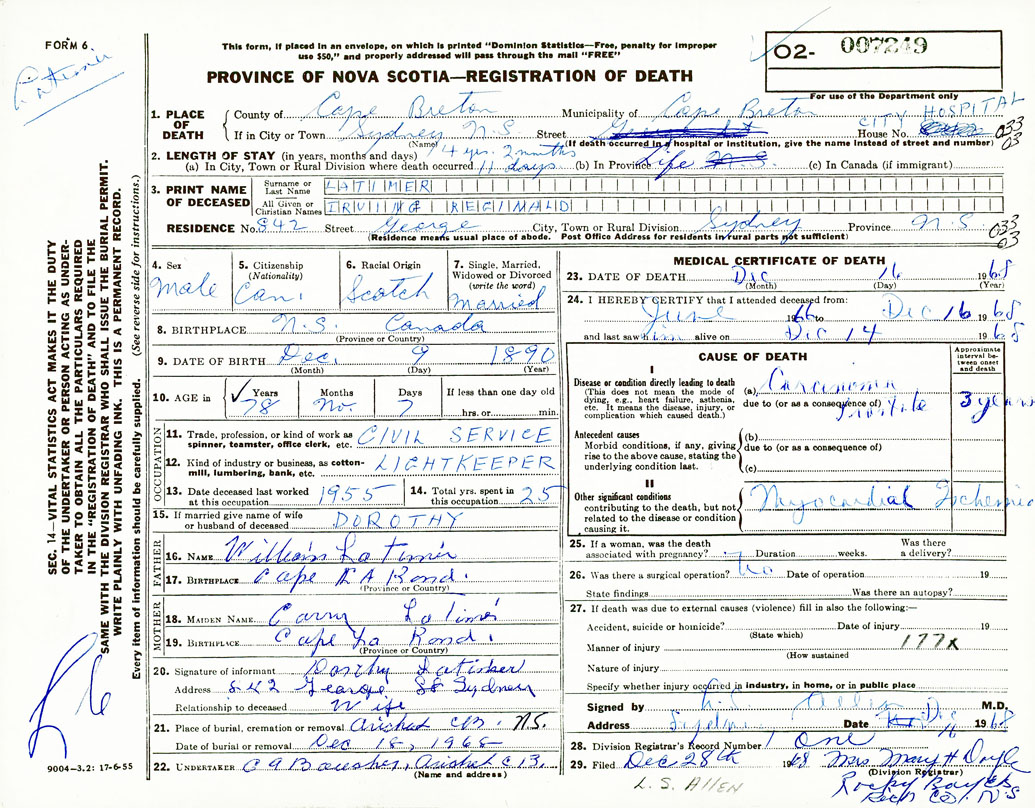 FORM 6
Latimer
This form, if placed in an envelope, on which is printed "Dominion Statistics—Free, penalty for improper
use $50," and properly addressed will pass through the mail "FREE"
PROVINCE OF NOVA SCOTIA—REGISTRATION OF DEATH
O2- 007249
For use of the Department only
1. PLACE OF DEATH
County of Cape Breton Municipality of Cape Breton
CITY HOSPITAL
If in City or Town Sydney N.S. Street House No. 033
03
(Name) (If death occurred in a hospital or institution, give the name instead of street and number)
2. LENGTH OF STAY (in years, months and days) 4 yrs. 2 months
(a) In City, Town or Rural Division where death occurred 11 days (b) In Province Life N.S. (c) In Canada (if immigrant)
3. PRINT NAME OF DECEASED
Surname or Last Name LATIMER
All Given or Christian Names IRVING REGINALD
RESIDENCE No. 842 Street George City, Town or Rural Division Sydney Province N.S 033
03
(Residence means usual place of abode. Post Office Address for residents in rural parts not sufficient)
4. Sex Male
5. Citizenship (Nationality) Can.
6. Racial Origin Scotch
7. Single, Married, Widowed or Divorced (write the word) Married
8. BIRTHPLACE N.S. Canada
(Province or Country)
9. DATE OF BIRTH Dec. 9 1890
(Month) (Day) (Year)
10. AGE in Years 78 Months No. Days 7 If less than one day old
hrs. or min.
OCCUPATION
11. Trade, profession, or kind of work as spinner, teamster, office clerk, etc. CIVIL SERVICE
12. Kind of industry or business, as cotton-mill, lumbering, bank, etc. LIGHTKEEPER
13. Date deceased last worked at this occupation 1955
14. Total yrs. spent in this occupation 25
15. If married give name of wife or husband of deceased DOROTHY
FATHER
16. NAME William Latimer
17. BIRTHPLACE Cape La Rond.
(Province or Country)
MOTHER
18. MAIDEN NAME Carry Latimer
19. BIRTHPLACE Cape La Rond.
(Province or Country)
20. Signature of informant Dorothy Latimer
Address 842 George St Sydney
Relationship to deceased Wife
21. Place of burial, cremation or removal Arichat CB. N.S.
Date of burial or removal Dec 18, 1968
22. UNDERTAKER C A Arichat C B.
(Name and address)
MEDICAL CERTIFICATE OF DEATH
23. DATE OF DEATH Dec 16 1968
(Month) (Day) (Year)
24. I HEREBY CERTIFY that I attended deceased from:
June 1966 to Dec 16 1968
and last saw him alive on Dec 14 1968
CAUSE OF DEATH
Approximate interval between onset and death
I
Disease or condition directly leading to death
(This does not mean the mode of dying, e.g., heart failure, asthenia, etc. It means the disease, injury, or complication which caused death.)
(a) Carcinoma
due to (or as a consequence of) Prostate 3 years
Antecedent causes
Morbid conditions, if any, giving rise to the above cause, stating the underlying condition last.
(b)
due to (or as a consequence of)
(c)
II
Other significant conditions
contributing to the death, but not related to the disease or condition causing it.
Myocardial Ischemia
25. If a woman, was the death associated with pregnancy? Duration weeks. Was there a delivery?
26. Was there a surgical operation? No Date of operation 19
State findings Was there an autopsy?
27. If death was due to external causes (violence) fill in also the following:—
Accident, suicide or homicide? Date of injury 19
(State which)
Manner of injury 177x
(How sustained
Nature of injury
Specify whether injury occurred in industry, in home, or in public place
Signed by L.S. Allen M.D.
Address Sydney Date Dec 16 1968
28. Division Registrar's Record Number one
29. Filed Dec 28th 1968 Mrs Mary H Doyle
(Division Registrar)
Rocky Bay
Rich Co. N.S
L.S. ALLEN
SEC. 14—VITAL STATISTICS ACT MAKES IT THE DUTY
OF THE UNDERTAKER OR PERSON ACTING AS UNDER-
TAKER TO OBTAIN ALL THE PARTICULARS REQUIRED
IN THE "REGISTRATION OF DEATH" AND TO FILE THE
SAME WITH THE DIVISION REGISTRAR WHO SHALL ISSUE THE BURIAL PERMIT.
WRITE PLAINLY WITH UNFADING INK. THIS IS A PERMANENT RECORD.
Every item of information should be carefully supplied. (See reverse side for instructions.)
9004—3.2: 17-6-55